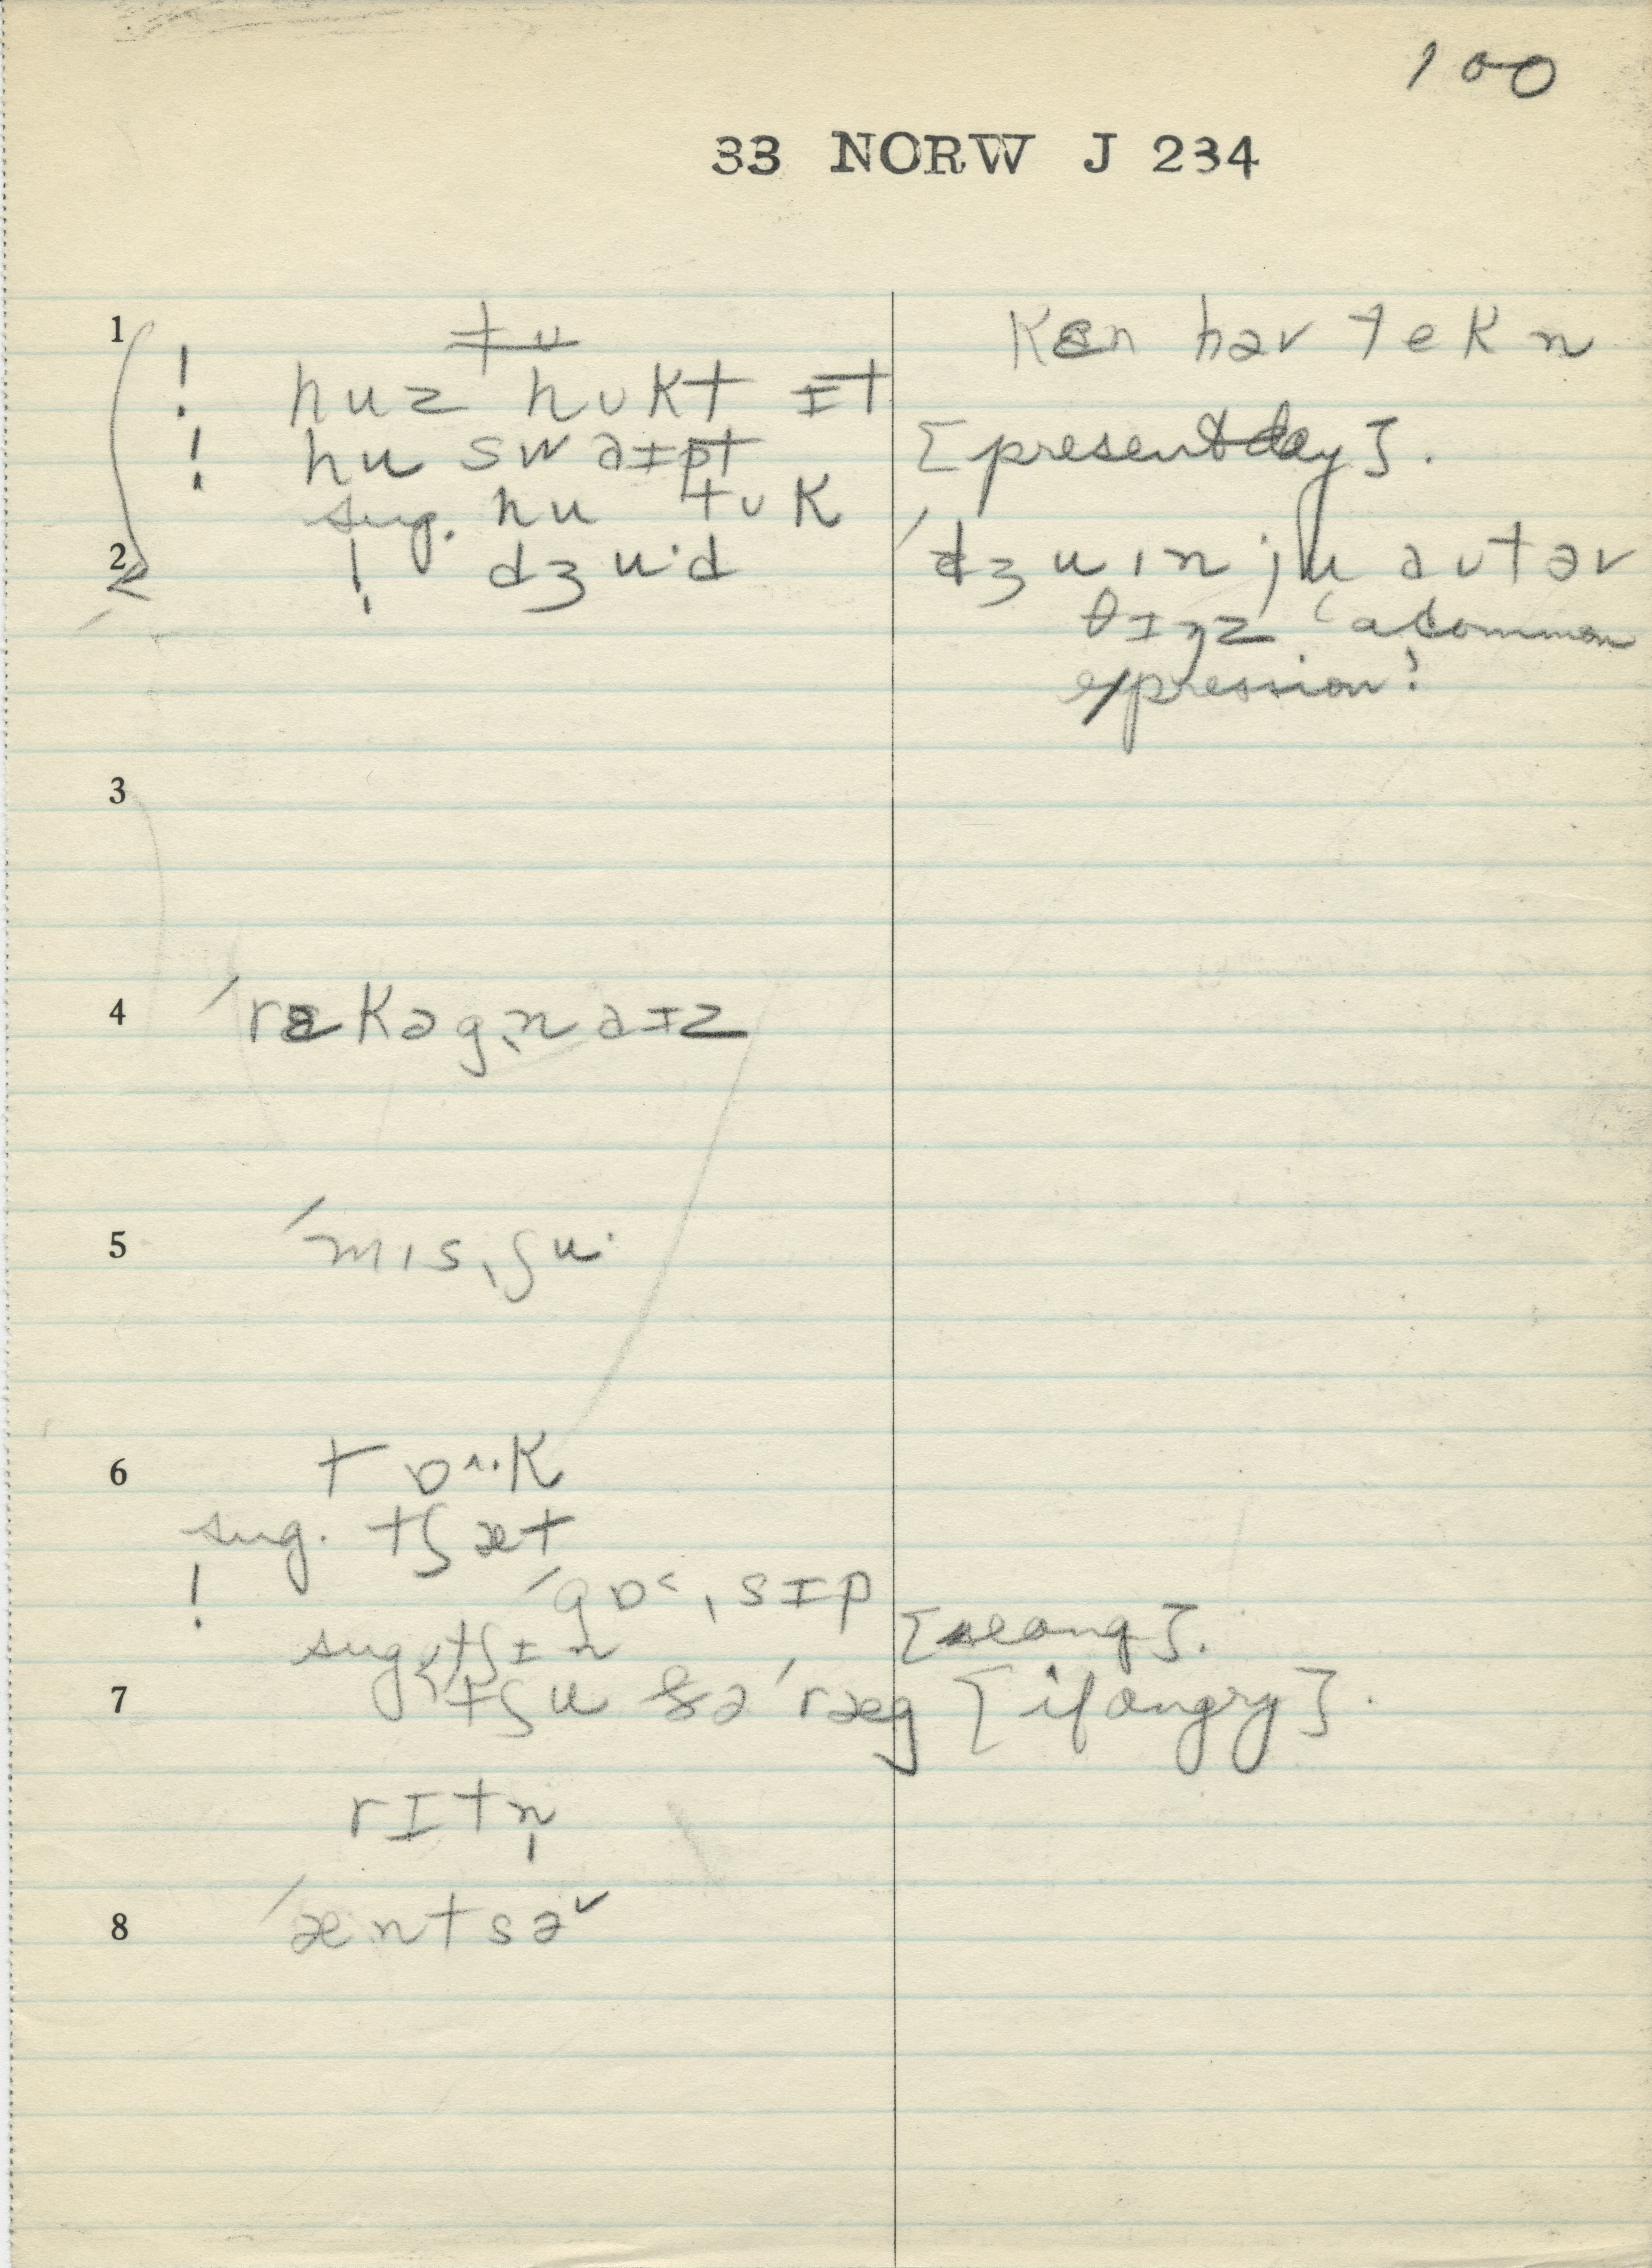 100
33 NORW J 234
1
t u
huz hʊkt ɪt
hu swaɪpt
sug. hu tʊk
kɛn hav tekn
[present day].
2
! dʒuˑd
ˈdʒuɪnˌju aʊtəv
θɪŋz ‘a common
expression’
3
4
ˈrɛkəgˌnaɪz
5
ˈmɪsˌʃuˑ
6
tɒ^ˑk
sug. tʃæt
! ˈgɒ˂ˌsɪp
sug. tʃɪn [slang].
7
tʃu ðə ˈræg [if angry].
rɪtn̩
8
ˈæntsəˇ